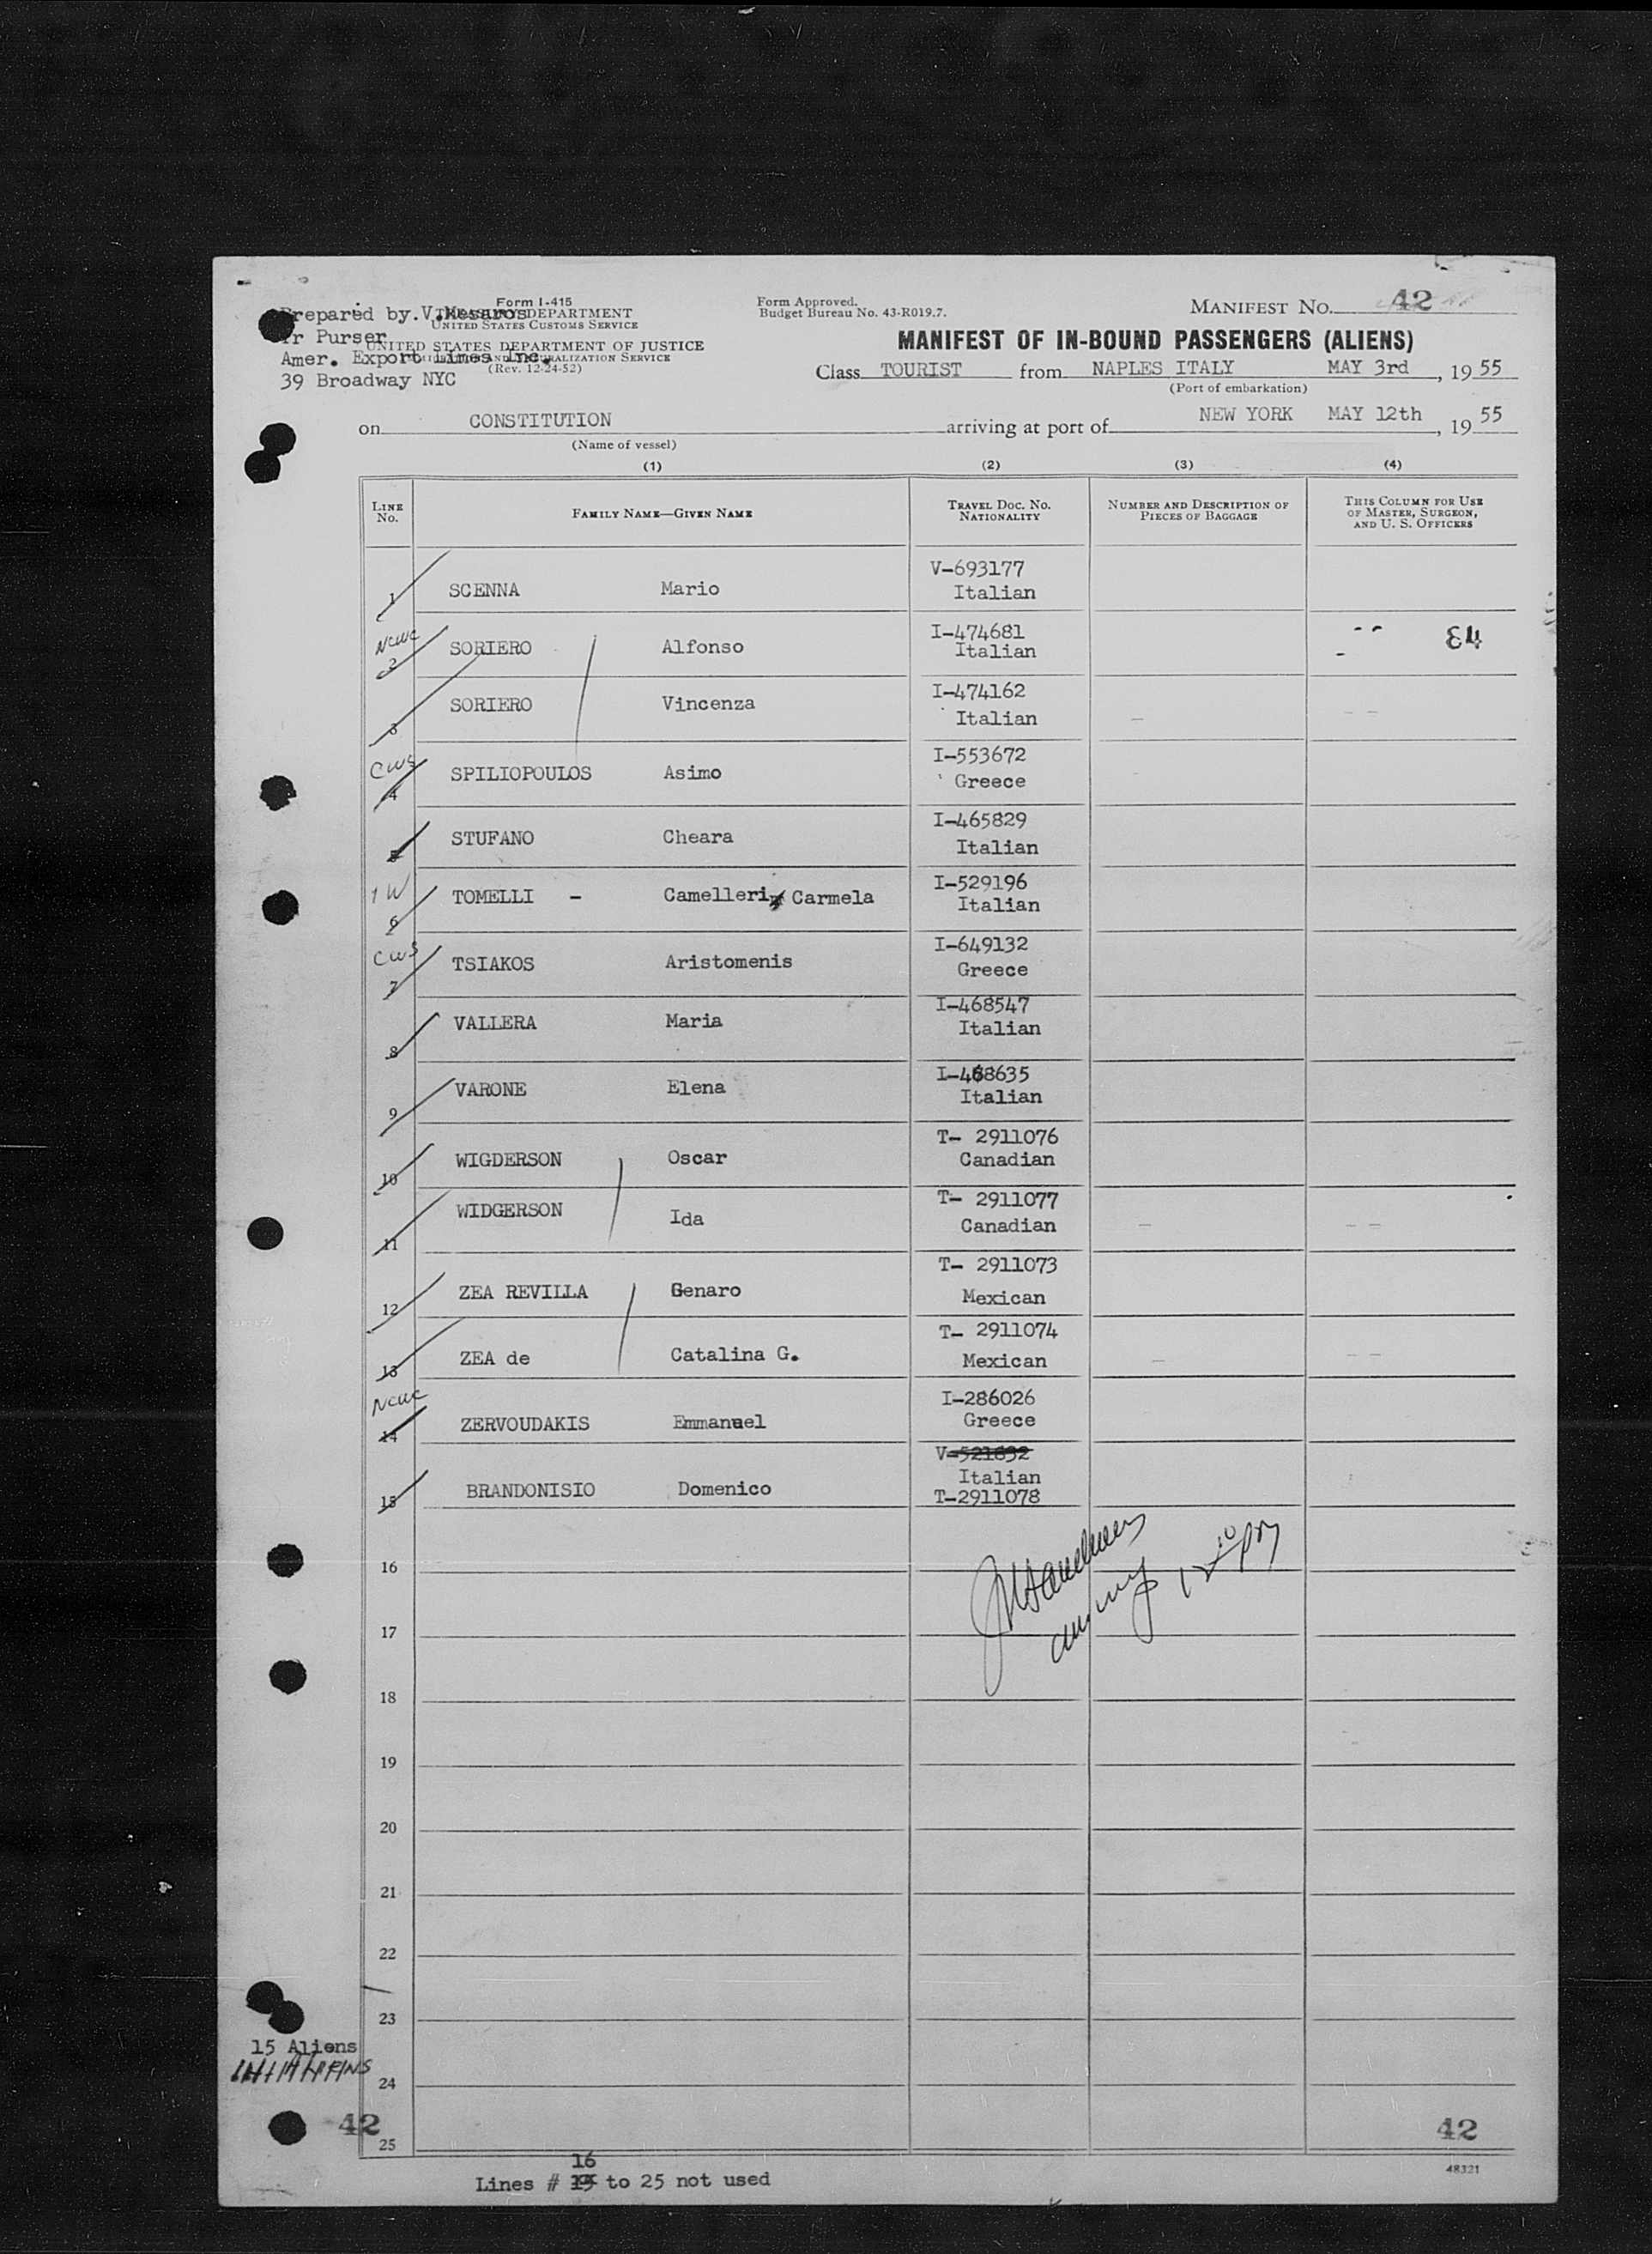 Form I-415
TREASURY DEPARTMENT
UNITED STATES CUSTOMS SERVICE
UNITED STATES DEPARTMENT OF JUSTICE
IMMIGRATION AND NATURALIZATION SERVICE
(Rev. 12-24-52)
Prepared by.V.Mesaros
Jr Purser
Amer. Export Lines Inc.
39 Broadway NYC
Form Approved.
Budget Bureau No. 43-R019.7.
MANIFEST NO. 42
MANIFEST OF IN-BOUND PASSENGERS (ALIENS)
Class TOURIST from NAPLES ITALY MAY 3rd, 1955
(Port of embarkation)
on CONSTITUTION arriving at port of NEW YORK MAY 12th, 1955
(Name of vessel)
(1) (2) (3) (4)
LINE NO. FAMILY NAME—GIVEN NAME TRAVEL DOC. NO. NATIONALITY NUMBER AND DESCRIPTION OF PIECES OF BAGGAGE THIS COLUMN FOR USE OF MASTER, SURGEON, AND U. S. OFFICERS
1 SCENNA Mario V-693177 Italian
NCWC 2 SORIERO Alfonso I-474681 Italian 84
3 SORIERO Vincenza I-474162 Italian
CWS 4 SPILIOPOULOS Asimo I-553672 Greece
5 STUFANO Cheara I-465829 Italian
1W 6 TOMELLI - Camelleri Carmela I-529196 Italian
CWS 7 TSIAKOS Aristomenis I-649132 Greece
8 VALLERA Maria I-468547 Italian
9 VARONE Elena I-468635 Italian
10 WIGDERSON Oscar T- 2911076 Canadian
11 WIDGERSON Ida T- 2911077 Canadian
12 ZEA REVILLA Genaro T- 2911073 Mexican
13 ZEA de Catalina G. T- 2911074 Mexican
NCWC 14 ZERVOUDAKIS Emmanuel I-286026 Greece
15 BRANDONISIO Domenico V-521632 Italian T-2911078
16
17
18
19
20
21
22
23
24
25
15 Aliens
42
42
16
Lines # 15 to 25 not used
48321